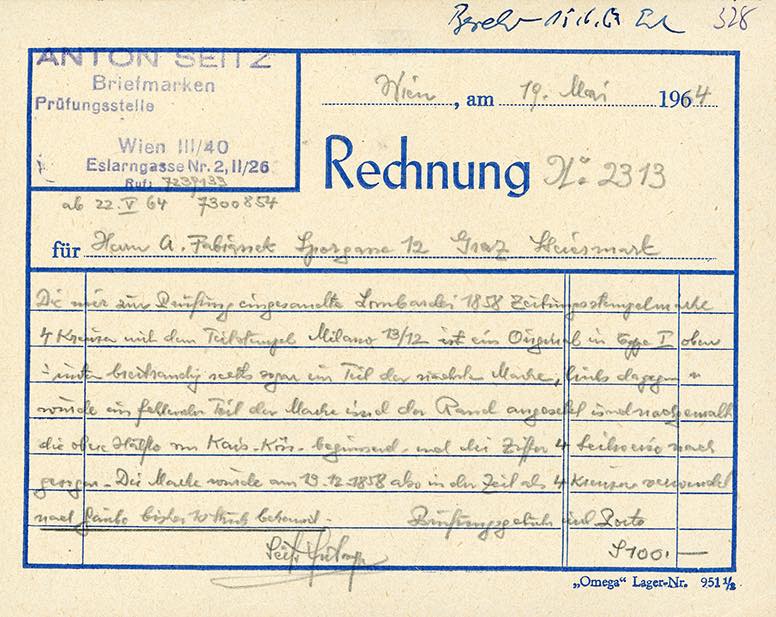 328
ANTON SEITZ
Briefmarken
Prüfungsstelle
Wien III/40
Eslarngasse Nr. 2, II/26
Ruf:
Wien, am 19. Mai 1964
Rechnung No 2313
ab 22. V 64 7300854
für Herrn A. Fabianek Sporgasse 12 Graz Steiermark
Die mir zur Prüfung eingesandte Lombardei 1858 Zeitungsstempelmarke
4 Kreuzer mit dem Teilstempel Milano 13/12 ist ein Original in Type I oben
unten breitrandig rechts sogar ein Teil der nächsten Marke, links dagegen
wurde ein fehlender Teil der Marke und der Rand angesetzt und nachgemalt
die obere Hälfte von Kais.-Kön.- beginnend und die Ziffer 4 teilweise nach
gezogen. Die Marke wurde am 13.12.1858 also in der Zeit als 4 Kreuzer verwendet
bisher 10 Stück bekannt. Prüfungsgebühr und Porto
Seitz S 100.—
„Omega“ Lager-Nr. 951 ½